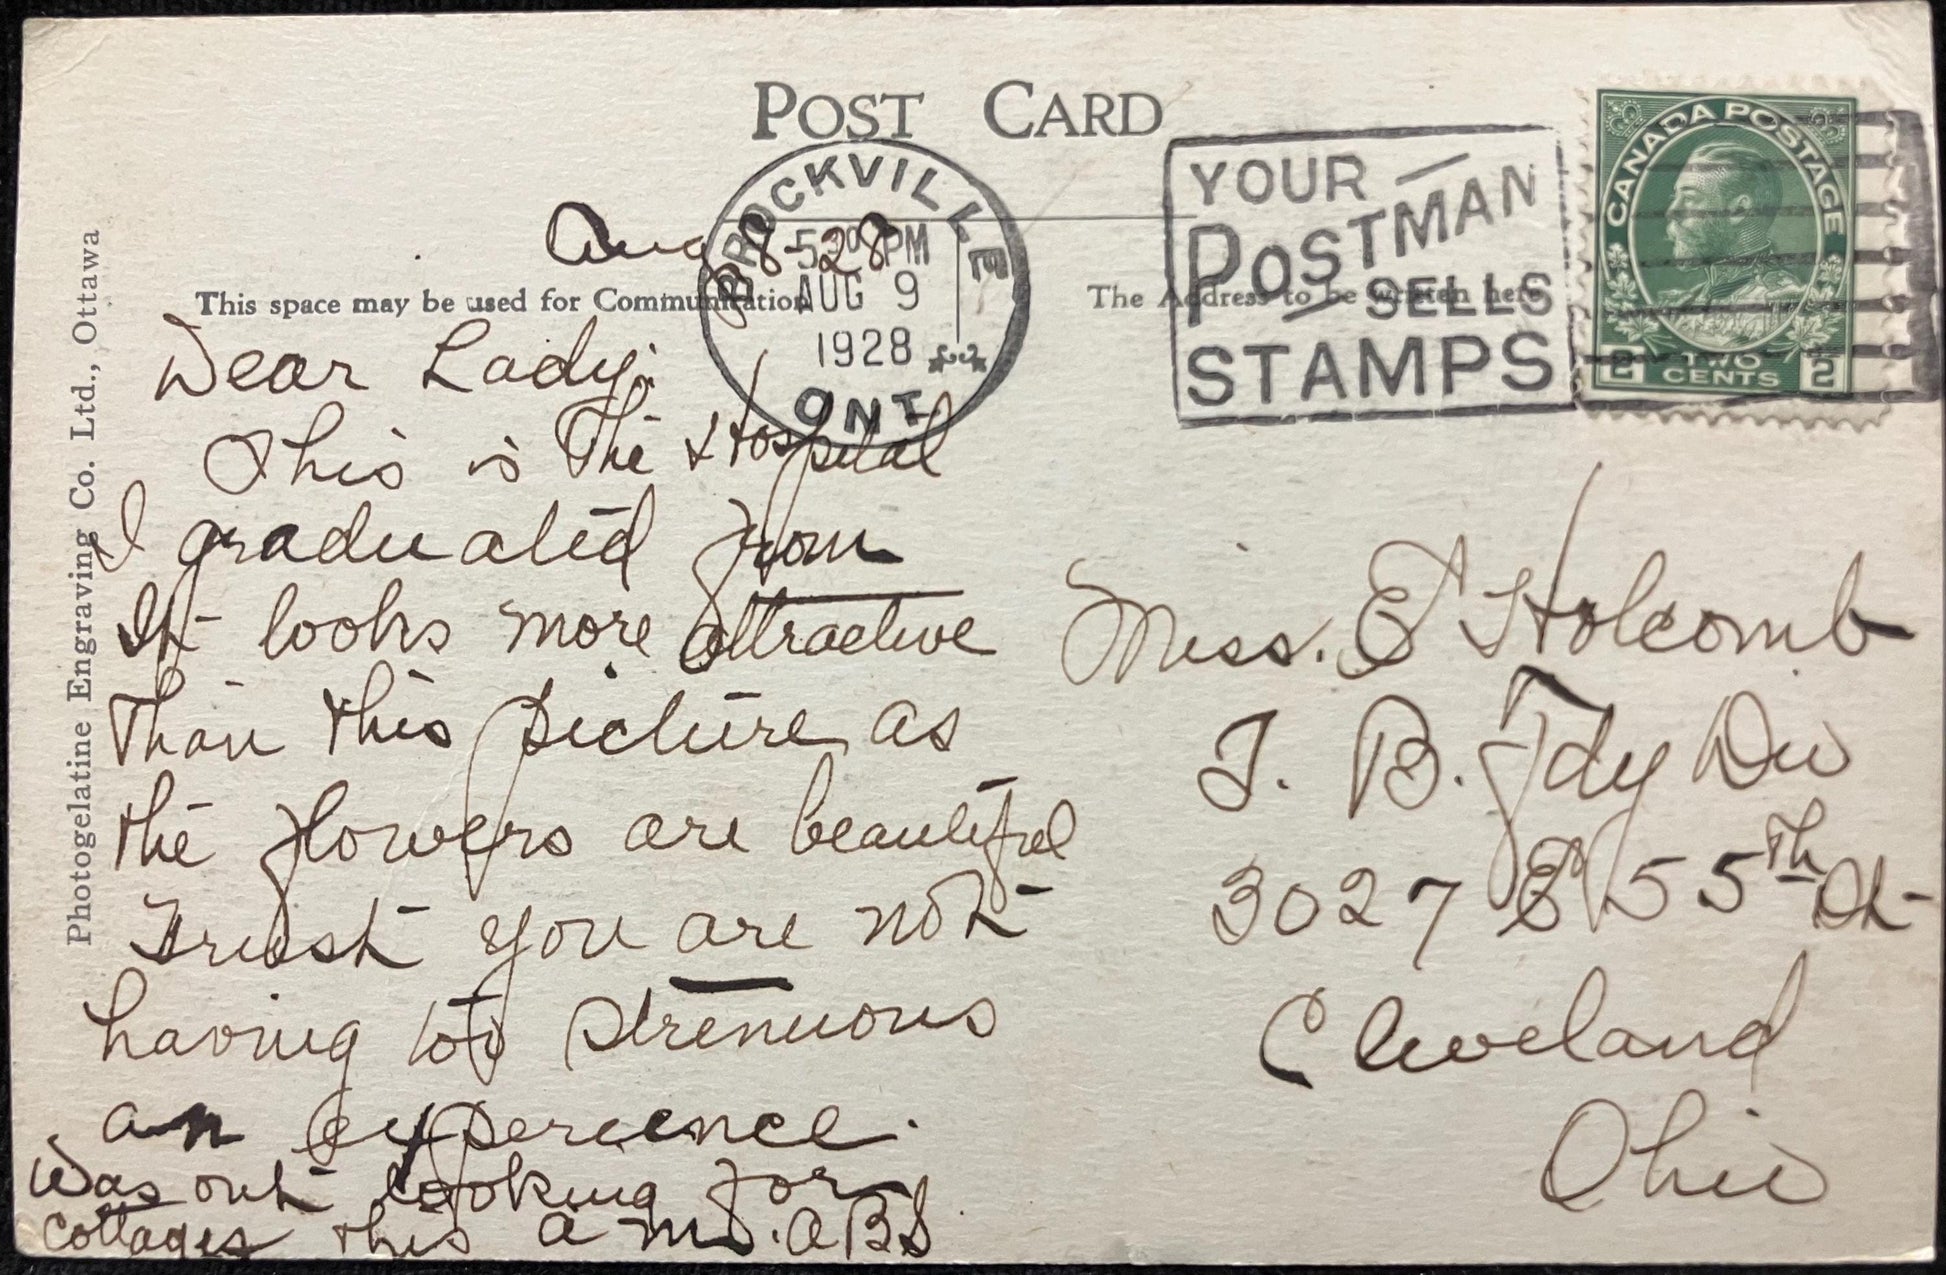 POST CARD
BROCKVILLE
5 30 PM
AUG 9
1928
ONT
YOUR
POSTMAN
SELLS
STAMPS
CANADA POSTAGE
2 TWO CENTS 2
Photogelatine Engraving Co. Ltd., Ottawa
This space may be used for Communication
The Address to be written here
Aug 8-28
Dear Lady:
This is The Hospital
I graduated from
It looks more attractive
Than this picture as
the flowers are beautiful
Trust you are not
having too strenuous
an experience.
Was out looking for
cottages this a m. ABS
Miss. E Holcomb
T. B.
3027 E 55th St
Cleveland
Ohio